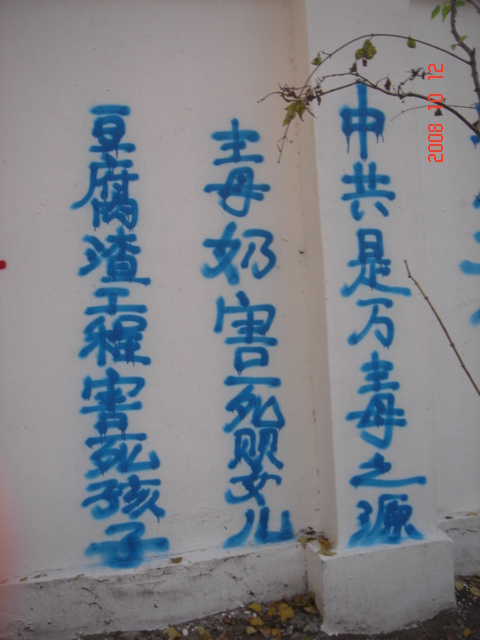 中共是万毒之源
毒奶害死婴女儿
豆腐渣工程害死孩子
2008 10 12